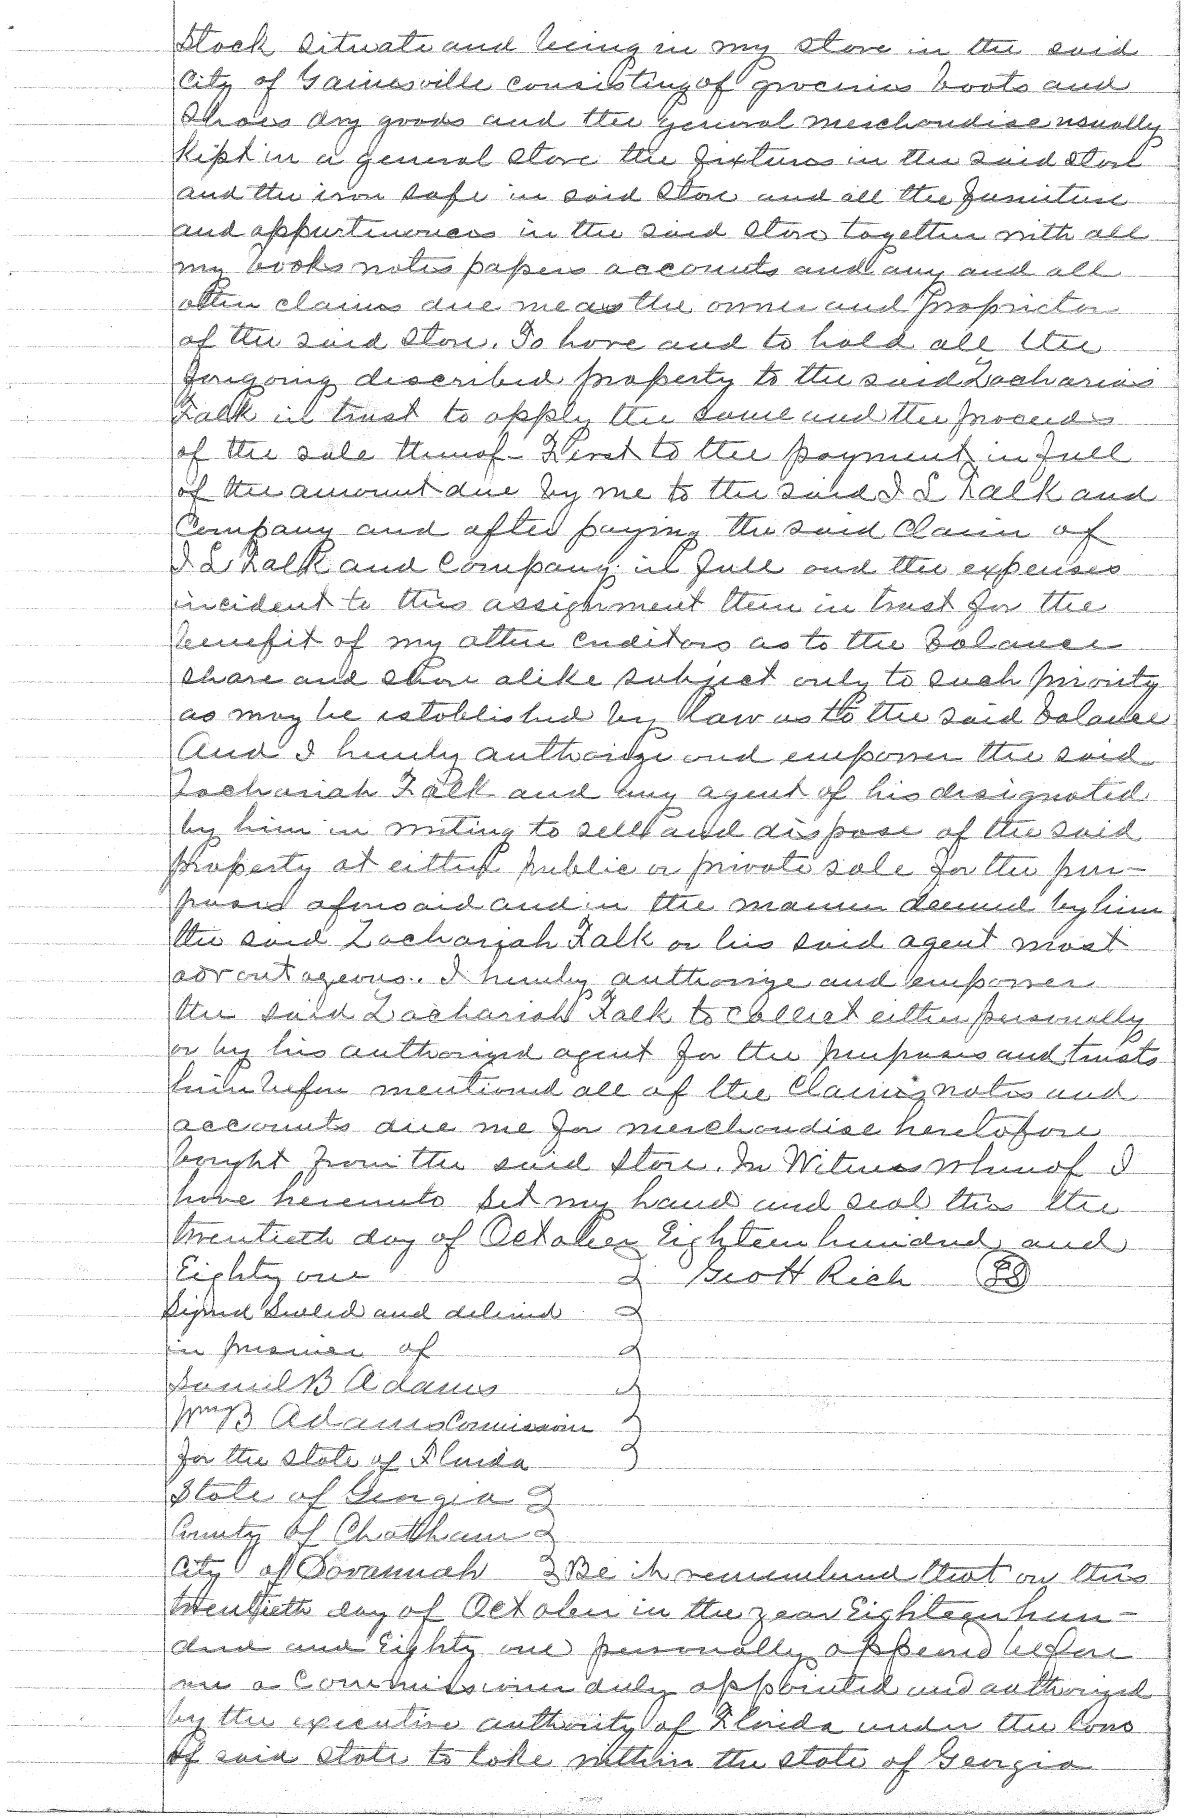 Stock situate and being in my store in the said
City of Gainesville consisting of groceries boots and
Shoes dry goods and the general merchandise usually
Kept in a general store the fixtures in the said store
and the iron safe in said store and all the furniture
and appurtenances in the said store together with all
my books notes papers accounts and any and all
other claims due me as the owner and proprietor
of the said store. To have and to hold all the
foregoing described property to the said Zacharias
Falk in trust to apply the same and the proceeds
of the sale thereof - First to the payment in full
of the amount due by me to the said I S Falk and
Company and after paying the said claim of
I S Falk and Company in full and the expenses
incident to this assignment then in trust for the
benefit of my other creditors as to the balance
share and share alike subject only to such priority
as may be established by law as to the said balance
And I hereby authorize and empower the said
Zachariah Falk and any agent of his designated
by him in writing to sell and dispose of the said
property at either public or private sale for the pur-
poses aforesaid and in the manner deemed by him
the said Zachariah Falk or his said agent most
advantageous. I hereby authorize and empower
the said Zachariah Falk to collect either personally
or by his authorized agent for the purposes and trusts
hereinbefore mentioned all of the claims notes and
accounts due me for merchandise heretofore
bought from the said store. In Witness whereof I
have hereunto set my hand and seal this the
twentieth day of October Eighteen hundred and
Eighty one } Geo H Rich (LS)
Signed Sealed and delivered }
in presence of }
Samuel B Adams }
Wm B Adams Commissioner }
for the state of Florida }
State of Georgia }
County of Chatham }
City of Savannah } Be it remembered that on this
twentieth day of October in the year Eighteen hun-
dred and Eighty one personally appeared before
me a Commissioner duly appointed and authorized
by the executive authority of Florida under the laws
of said state to take within the state of Georgia